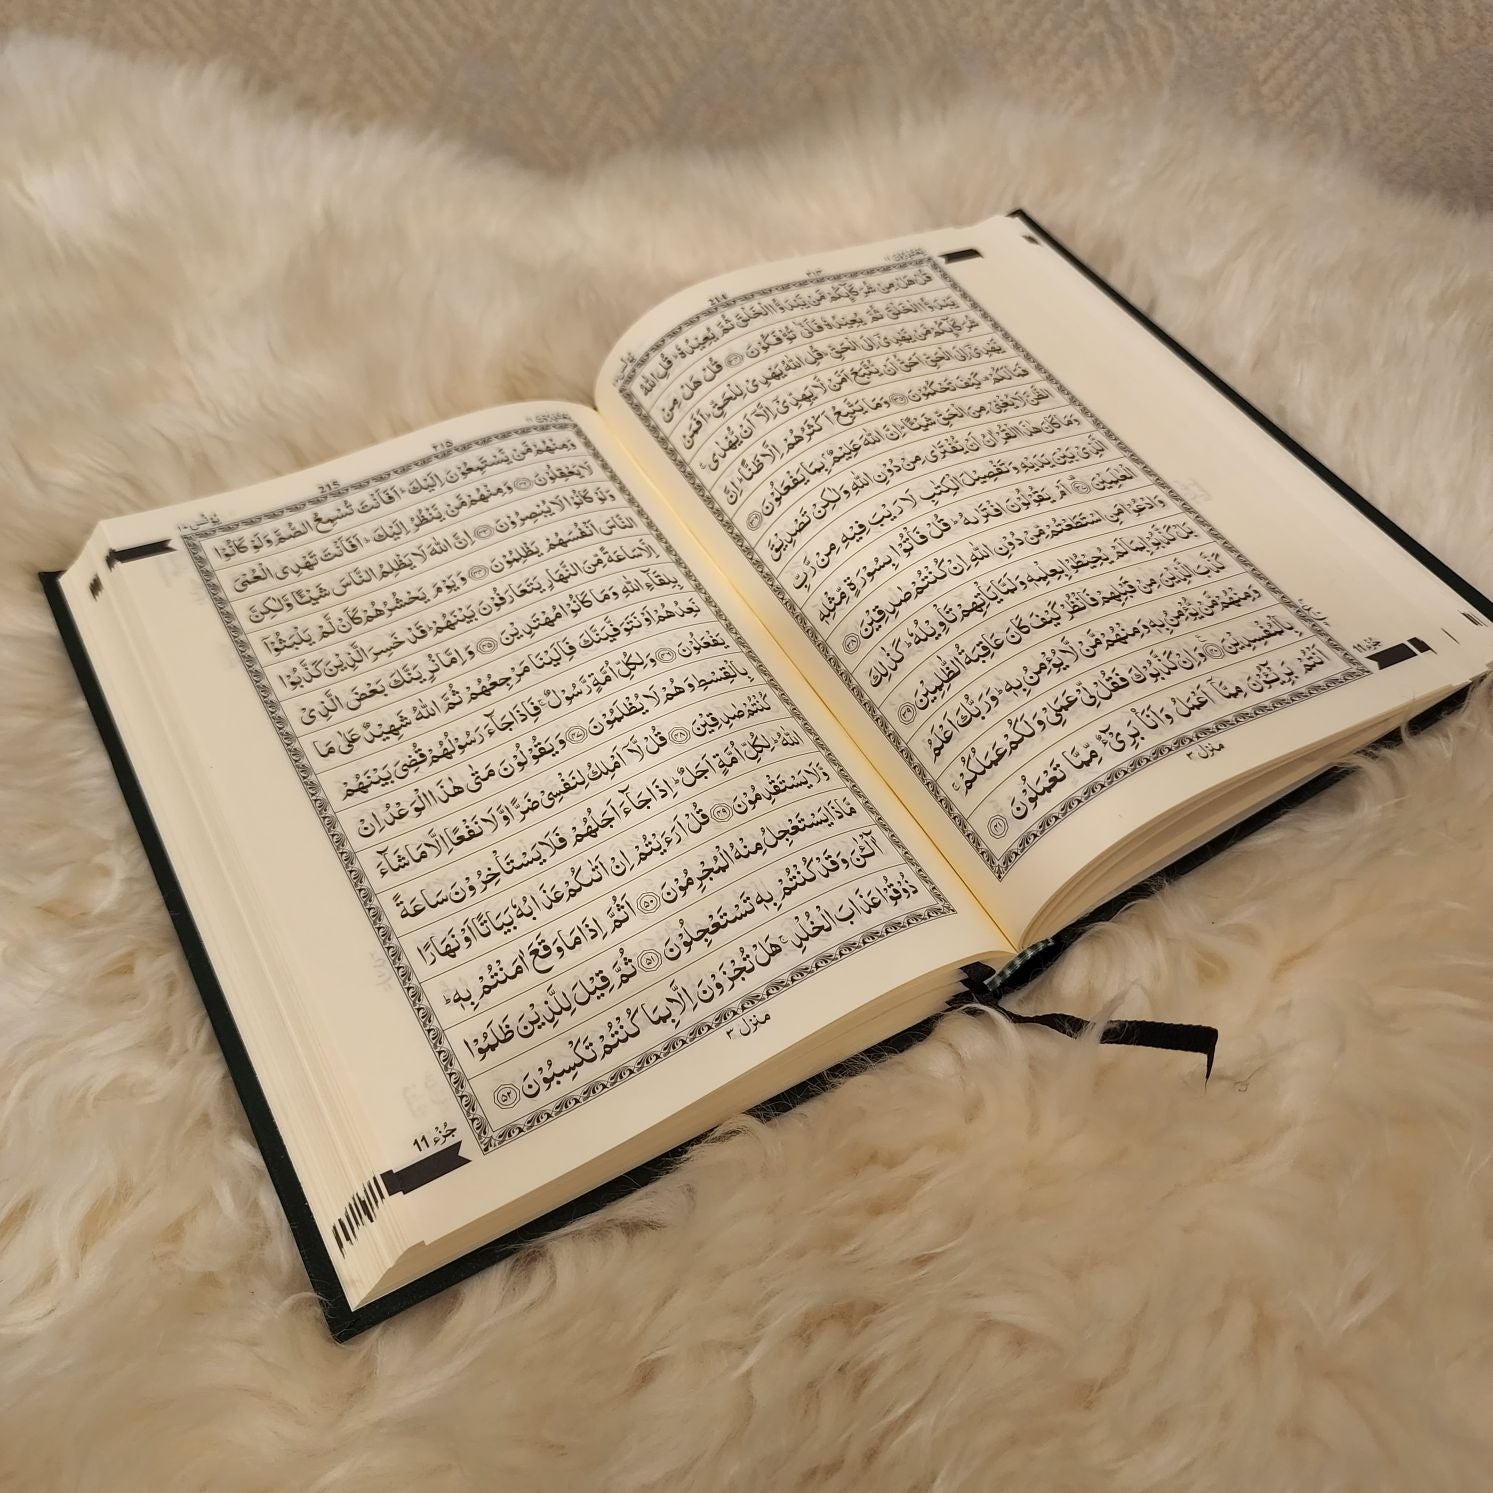 يَعْتَذِرُوْنَ ۱۱ ۲۱۴ 214 يُوْنُس ۱۰
قُلْ هَلْ مِنْ شُرَكَآئِكُمْ مَّنْ يَّبْدَؤُا الْخَلْقَ ثُمَّ يُعِيْدُهٗ ؕ قُلِ اللّٰهُ
يَبْدَؤُا الْخَلْقَ ثُمَّ يُعِيْدُهٗ فَاَنّٰى تُؤْفَكُوْنَ ۳۴ قُلْ هَلْ مِنْ
شُرَكَآئِكُمْ مَّنْ يَّهْدِيْٓ اِلَى الْحَقِّ ؕ قُلِ اللّٰهُ يَهْدِيْ لِلْحَقِّ ؕ اَفَمَنْ
يَّهْدِيْٓ اِلَى الْحَقِّ اَحَقُّ اَنْ يُّتَّبَعَ اَمَّنْ لَّا يَهِدِّيْٓ اِلَّآ اَنْ يُّهْدٰى ۚ
فَمَا لَكُمْ ۫ كَيْفَ تَحْكُمُوْنَ ۳۵ وَمَا يَتَّبِعُ اَكْثَرُهُمْ اِلَّا ظَنًّا ؕ اِنَّ
الظَّنَّ لَا يُغْنِيْ مِنَ الْحَقِّ شَيْئًا ؕ اِنَّ اللّٰهَ عَلِيْمٌۢ بِمَا يَفْعَلُوْنَ ۳۶
وَمَا كَانَ هٰذَا الْقُرْاٰنُ اَنْ يُّفْتَرٰى مِنْ دُوْنِ اللّٰهِ وَلٰكِنْ تَصْدِيْقَ
الَّذِيْ بَيْنَ يَدَيْهِ وَتَفْصِيْلَ الْكِتٰبِ لَا رَيْبَ فِيْهِ مِنْ رَّبِّ
الْعٰلَمِيْنَ ۳۷ اَمْ يَقُوْلُوْنَ افْتَرٰىهُ ؕ قُلْ فَاْتُوْا بِسُوْرَةٍ مِّثْلِهٖ
وَادْعُوْا مَنِ اسْتَطَعْتُمْ مِّنْ دُوْنِ اللّٰهِ اِنْ كُنْتُمْ صٰدِقِيْنَ ۳۸
بَلْ كَذَّبُوْا بِمَا لَمْ يُحِيْطُوْا بِعِلْمِهٖ وَلَمَّا يَاْتِهِمْ تَاْوِيْلُهٗ ؕ كَذٰلِكَ
كَذَّبَ الَّذِيْنَ مِنْ قَبْلِهِمْ فَانْظُرْ كَيْفَ كَانَ عَاقِبَةُ الظّٰلِمِيْنَ ۳۹
وَمِنْهُمْ مَّنْ يُّؤْمِنُ بِهٖ وَمِنْهُمْ مَّنْ لَّا يُؤْمِنُ بِهٖ ؕ وَرَبُّكَ اَعْلَمُ
بِالْمُفْسِدِيْنَ ۴۰ وَاِنْ كَذَّبُوْكَ فَقُلْ لِّيْ عَمَلِيْ وَلَكُمْ عَمَلُكُمْ ۚ
اَنْتُمْ بَرِيْٓـُٔوْنَ مِمَّآ اَعْمَلُ وَاَنَا بَرِيْٓءٌ مِّمَّا تَعْمَلُوْنَ ۴۱
منزل ۳
جُزْء 11
يَعْتَذِرُوْنَ ۱۱ ۲۱۵ 215 يُوْنُس ۱۰
وَمِنْهُمْ مَّنْ يَّسْتَمِعُوْنَ اِلَيْكَ ؕ اَفَاَنْتَ تُسْمِعُ الصُّمَّ وَلَوْ كَانُوْا
لَا يَعْقِلُوْنَ ۴۲ وَمِنْهُمْ مَّنْ يَّنْظُرُ اِلَيْكَ ؕ اَفَاَنْتَ تَهْدِي الْعُمْيَ
وَلَوْ كَانُوْا لَا يُبْصِرُوْنَ ۴۳ اِنَّ اللّٰهَ لَا يَظْلِمُ النَّاسَ شَيْئًا وَّلٰكِنَّ
النَّاسَ اَنْفُسَهُمْ يَظْلِمُوْنَ ۴۴ وَيَوْمَ يَحْشُرُهُمْ كَاَنْ لَّمْ يَلْبَثُوْٓا
اِلَّا سَاعَةً مِّنَ النَّهَارِ يَتَعَارَفُوْنَ بَيْنَهُمْ ؕ قَدْ خَسِرَ الَّذِيْنَ كَذَّبُوْا
بِلِقَآءِ اللّٰهِ وَمَا كَانُوْا مُهْتَدِيْنَ ۴۵ وَاِمَّا نُرِيَنَّكَ بَعْضَ الَّذِيْ
نَعِدُهُمْ اَوْ نَتَوَفَّيَنَّكَ فَاِلَيْنَا مَرْجِعُهُمْ ثُمَّ اللّٰهُ شَهِيْدٌ عَلٰى مَا
يَفْعَلُوْنَ ۴۶ وَلِكُلِّ اُمَّةٍ رَّسُوْلٌ ۚ فَاِذَا جَآءَ رَسُوْلُهُمْ قُضِيَ بَيْنَهُمْ
بِالْقِسْطِ وَهُمْ لَا يُظْلَمُوْنَ ۴۷ وَيَقُوْلُوْنَ مَتٰى هٰذَا الْوَعْدُ اِنْ
كُنْتُمْ صٰدِقِيْنَ ۴۸ قُلْ لَّآ اَمْلِكُ لِنَفْسِيْ ضَرًّا وَّلَا نَفْعًا اِلَّا مَا شَآءَ
اللّٰهُ ؕ لِكُلِّ اُمَّةٍ اَجَلٌ ؕ اِذَا جَآءَ اَجَلُهُمْ فَلَا يَسْتَاْخِرُوْنَ سَاعَةً
وَّلَا يَسْتَقْدِمُوْنَ ۴۹ قُلْ اَرَءَيْتُمْ اِنْ اَتٰىكُمْ عَذَابُهٗ بَيَاتًا اَوْ نَهَارًا
مَّاذَا يَسْتَعْجِلُ مِنْهُ الْمُجْرِمُوْنَ ۵۰ اَثُمَّ اِذَا مَا وَقَعَ اٰمَنْتُمْ بِهٖ ؕ
آٰلْـٰٔنَ وَقَدْ كُنْتُمْ بِهٖ تَسْتَعْجِلُوْنَ ۵۱ ثُمَّ قِيْلَ لِلَّذِيْنَ ظَلَمُوْا
ذُوْقُوْا عَذَابَ الْخُلْدِ ۚ هَلْ تُجْزَوْنَ اِلَّا بِمَا كُنْتُمْ تَكْسِبُوْنَ ۵۲
منزل ۳
جُزْء 11